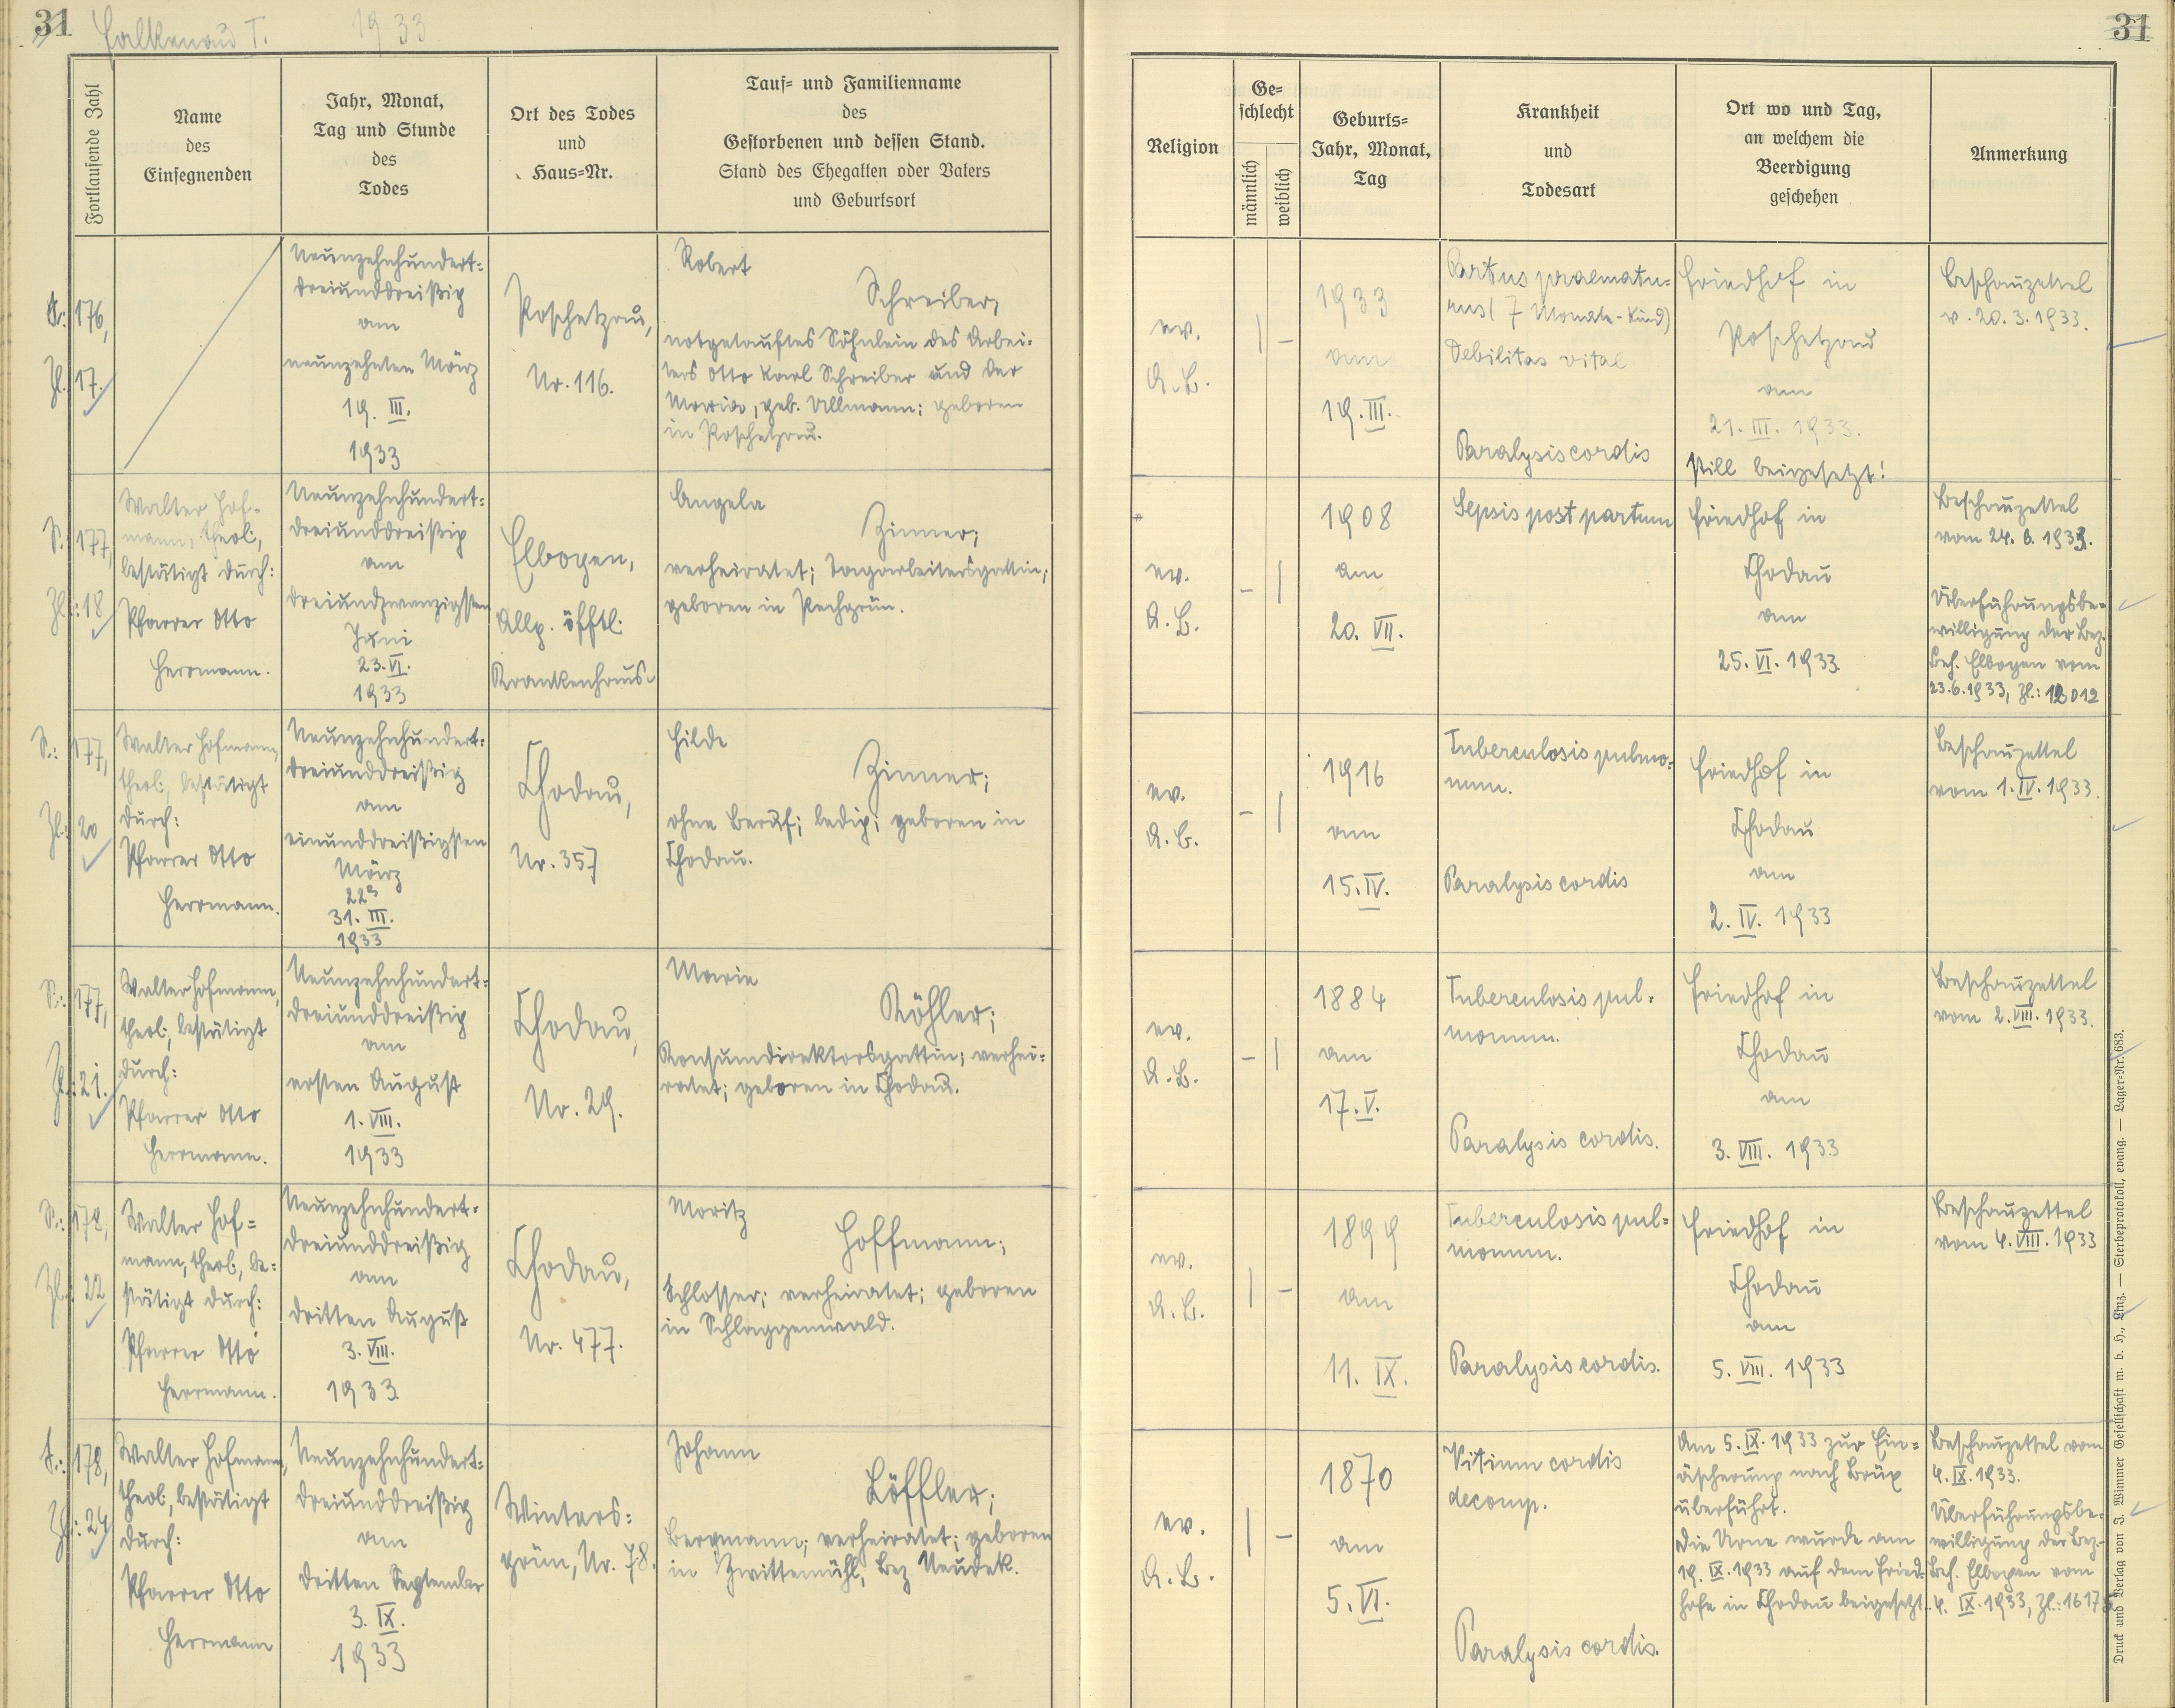 31 Falkenau T. 1933
Fortlaufende Zahl
Name
des
Einsegnenden
Jahr, Monat,
Tag und Stunde
des
Todes
Ort des Todes
und
Haus=Nr.
Tauf= und Familienname
des
Gestorbenen und dessen Stand.
Stand des Ehegatten oder Vaters
und Geburtsort
31
Religion
Ge=
schlecht
männlich
weiblich
Geburts=
Jahr, Monat,
Tag
Krankheit
und
Todesart
Ort wo und Tag,
an welchem die
Beerdigung
geschehen
Anmerkung
S.: 176,
Zl. 17.
Neunzehnhundert=
dreiunddreißig
am
neunzehnten März
19. III.
1933
Poschetzau,
Nr. 116.
Robert
Schreiber,
notgetauftes Söhnlein des Arbei=
ters Otto Karl Schreiber und der
Maria, geb. Ullmann; geboren
in Poschetzau.
ev.
A.B.
1933
am
19. III.
Partus praematu=
rus (7 Monate-Kind)
Debilitas vital
Paralysis cordis
Friedhof in
Poschetzau
am
21. III. 1933.
still beigesetzt!
Beschauzettel
v. 20.3.1933.
S. 177,
Zl.: 18
Walter Hof=
mann, theol.,
bestätigt durch:
Pfarrer Otto
Herrmann.
Neunzehnhundert=
dreiunddreißig
am
dreiundzwanzigsten
Juni
23. VI.
1933
Elbogen,
Allg. öfftl.
Krankenhaus.
Angela
Zinner;
verheiratet; Tagarbeitersgattin;
geboren in Pechgrün.
ev.
A.B.
1908
am
20. VII.
Sepsis post partum
Friedhof in
Chodau
am
25. VI. 1933
Beschauzettel
vom 24.6.1933.
Überführungsbe=
willigung der Bez.
Beh. Elbogen vom
23.6.1933, Zl.: 12012
S.: 177,
Zl.: 20
Walter Hofmann,
theol., bestätigt
durch:
Pfarrer Otto
Herrmann.
Neunzehnhundert=
dreiunddreißig
am
einunddreißigsten
März
22h
31. III.
1933
Chodau,
Nr. 357
Hilde
Zinner;
ohne Beruf; ledig; geboren in
Chodau.
ev.
A.B.
1916
am
15. IV.
Tuberculosis pulmo=
num.
Paralysis cordis
Friedhof in
Chodau
am
2. IV. 1933
Beschauzettel
vom 1. IV. 1933.
S.: 177,
Zl.: 21.
Walter Hofmann,
theol., bestätigt
durch:
Pfarrer Otto
Herrmann.
Neunzehnhundert=
dreiunddreißig
am
ersten August
1. VIII.
1933
Chodau,
Nr. 29.
Marie
Köhler;
Konsumdirektorsgattin; verhei=
ratet; geboren in Chodau.
ev.
A.B.
1884
am
17. V.
Tuberculosis pul=
monum.
Paralysis cordis.
Friedhof in
Chodau
am
3. VIII. 1933
Beschauzettel
vom 2. VIII. 1933.
S.: 178,
Zl.: 22
Walter Hof=
mann, theol., be=
stätigt durch:
Pfarrer Otto
Herrmann.
Neunzehnhundert=
dreiunddreißig
am
dritten August
3. VIII.
1933.
Chodau,
Nr. 477.
Moritz
Hoffmann;
Schlosser; verheiratet; geboren
in Schlaggenwald.
ev.
A.B.
1899
am
11. IX.
Tuberculosis pul=
monum.
Paralysis cordis.
Friedhof in
Chodau
am
5. VIII. 1933
Beschauzettel
vom 4. VIII. 1933
S.: 178,
Zl.: 24
Walter Hofmann,
theol., bestätigt
durch:
Pfarrer Otto
Herrmann
Neunzehnhundert=
dreiunddreißig
am
dritten September
3. IX.
1933
Winters=
grün, Nr. 78.
Johann
Löffler;
Bergmann; verheiratet; geboren
in Zwittermühl, Bez Neudek.
ev.
A.B.
1870
am
5. VI.
Vitium cordis
decomp.
Paralysis cordis.
Am 5. IX. 1933 zur Ein=
äscherung nach Brüx
überführt.
Die Urne wurde am
19. IX. 1933 auf dem Fried=
hofe in Chodau beigesetzt.
Beschauzettel vom
4. IX. 1933.
Überführungsbe=
willigung der Bez.=
Beh. Elbogen vom
4. IX. 1933, Zl.: 1617
Druck und Verlag von J. Wimmer Gesellschaft m. b. H., Linz. — Sterbeprotokoll, evang. — Lager=Nr. 683.